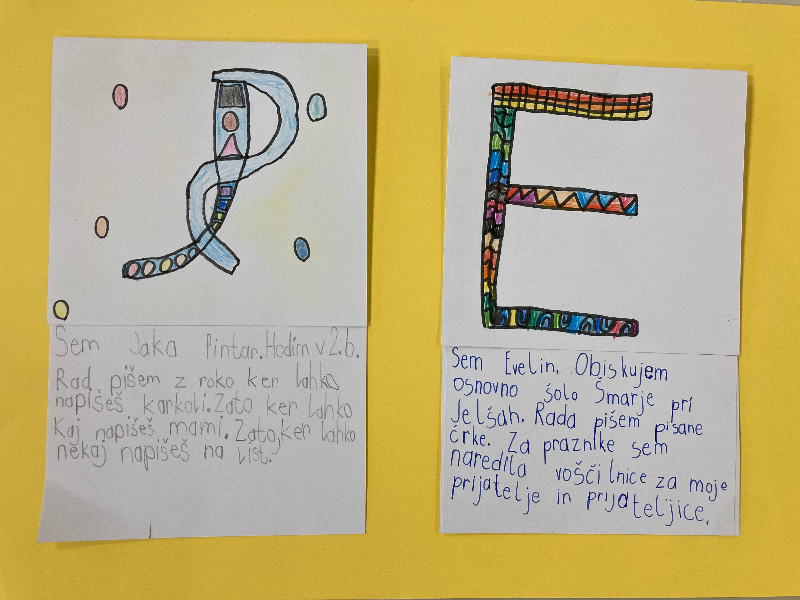 Sem Jaka Pintar. Hodim v 2.b.
Rad pišem z roko ker lahko
napišeš karkoli. Zato ker lahko
kaj napišeš mami. Zato, ker lahko
nekaj napišeš na list.
E
Sem Evelin. Obiskujem
osnovno šolo Šmarje pri
Jelšah. Rada pišem pisane
črke. Za praznike sem
naredila voščilnice za moje
prijatelje in prijateljice.